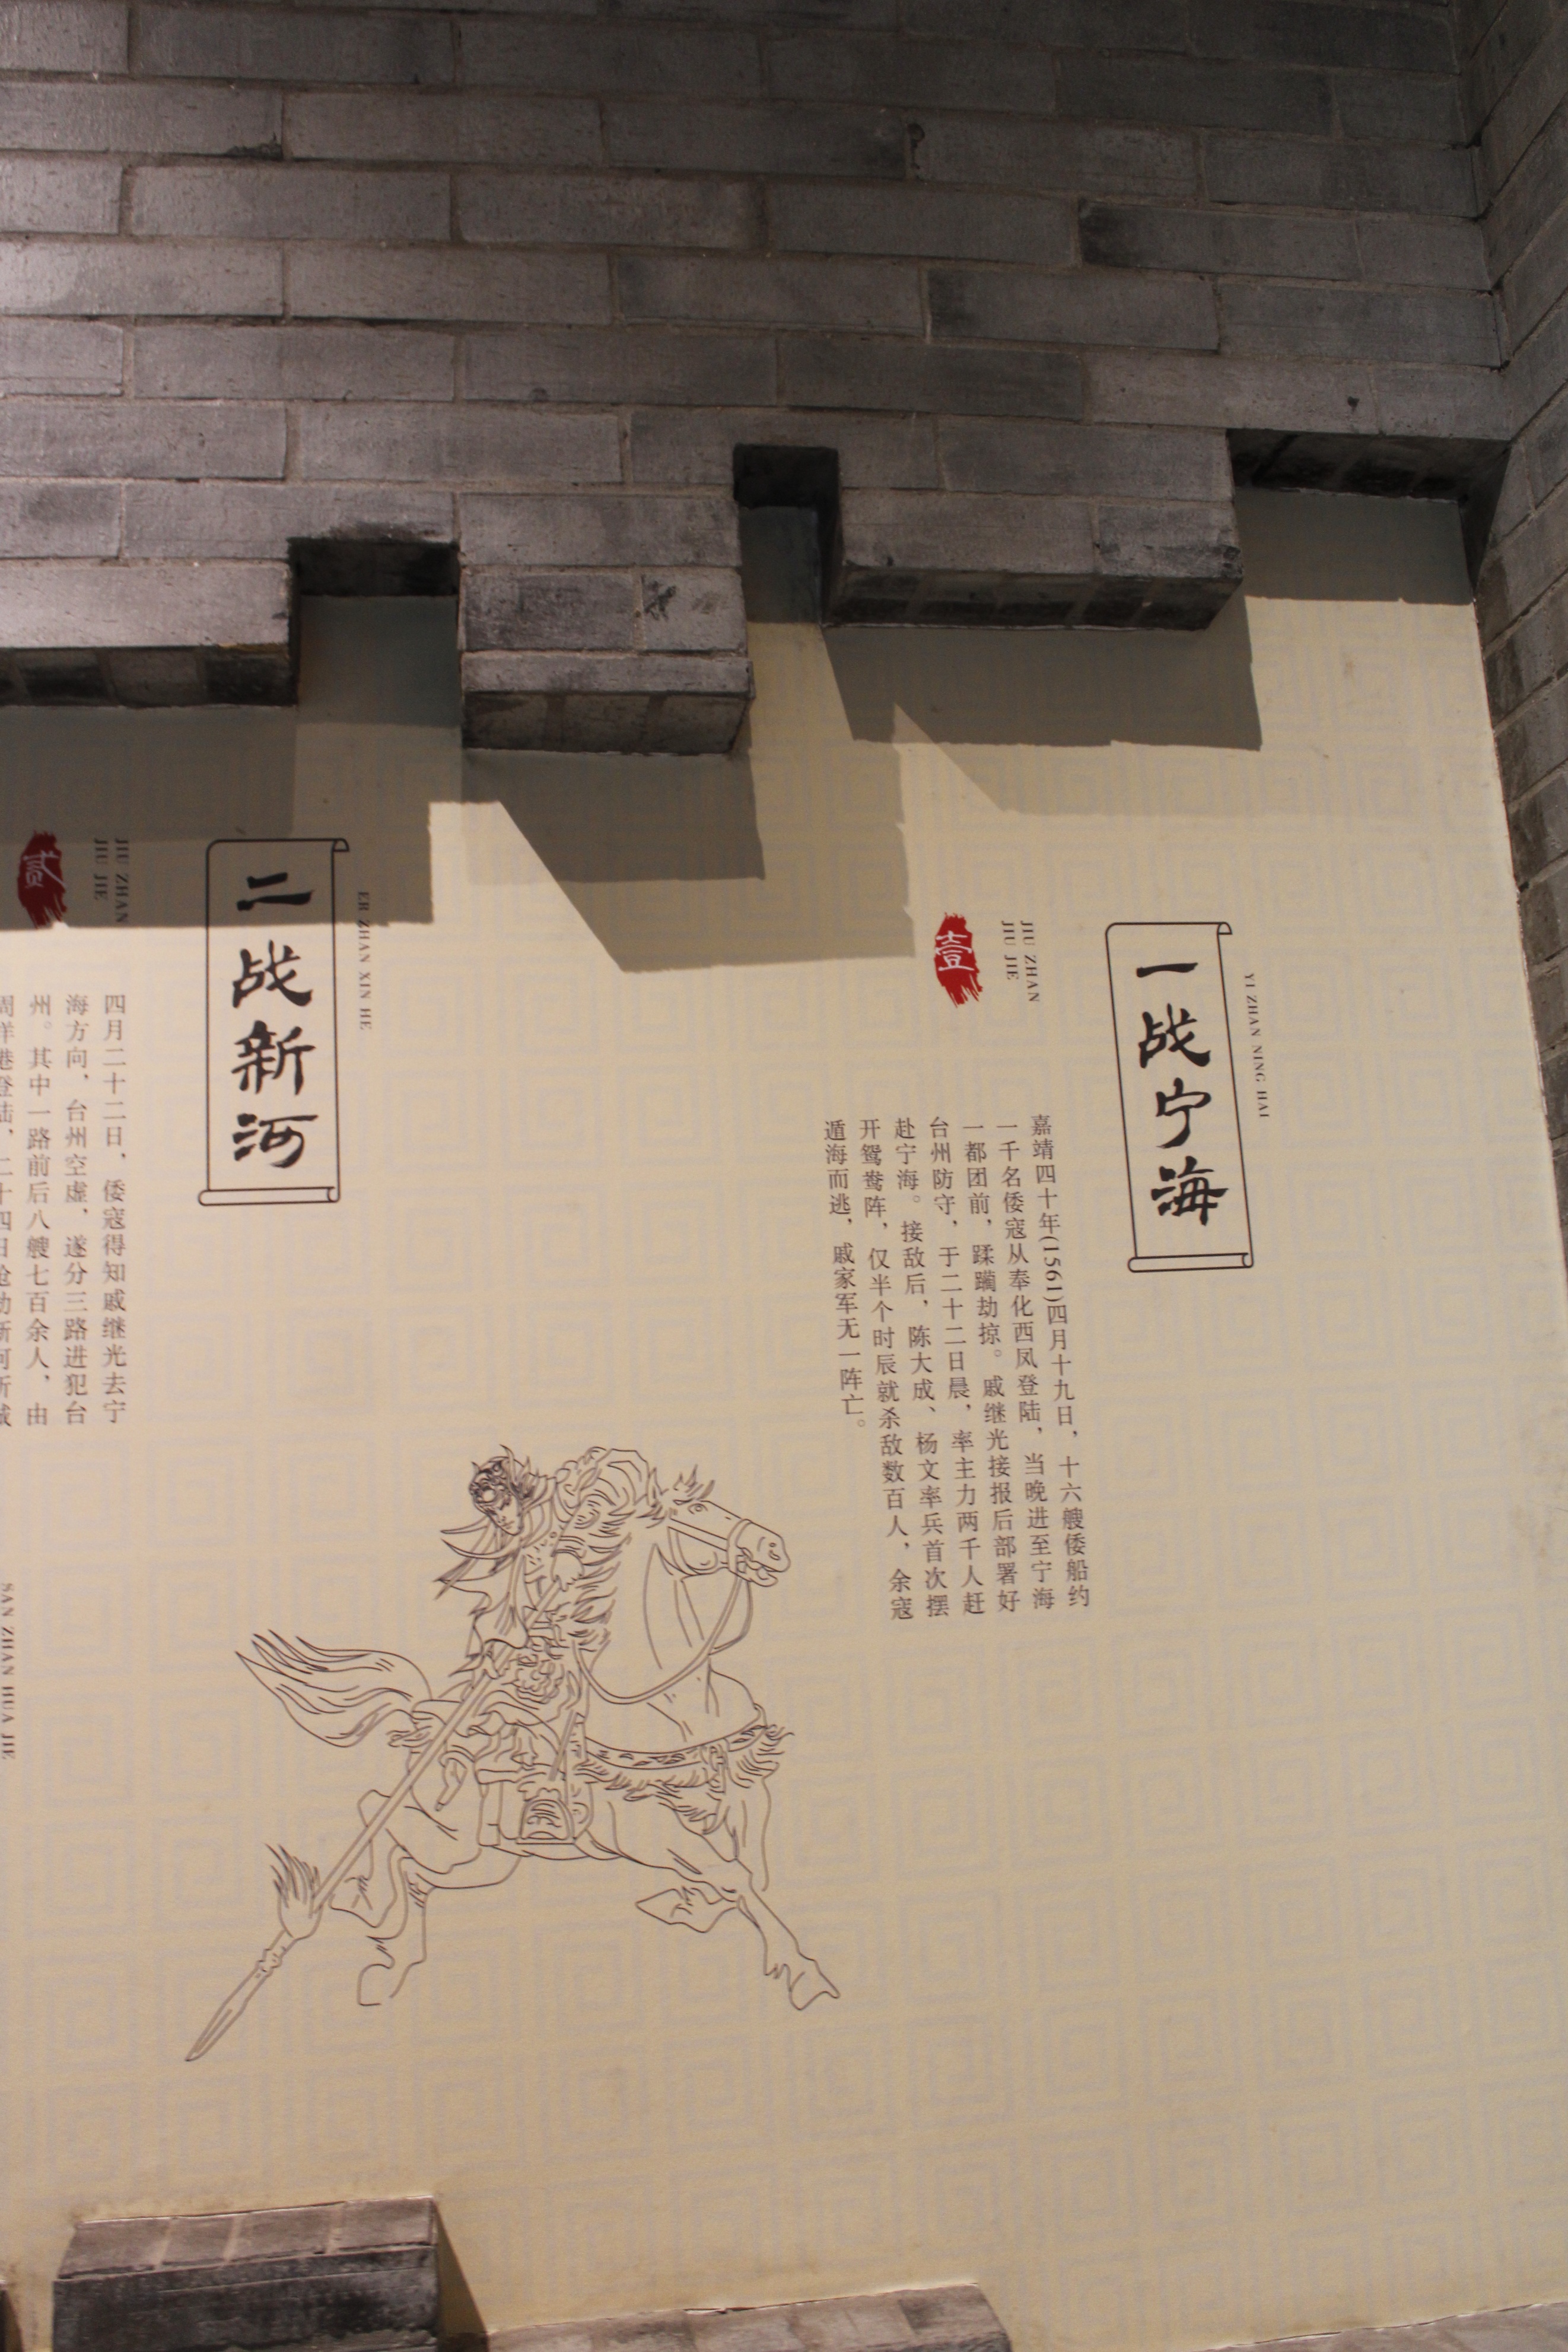 YI ZHAN NING HAI
一战宁海
JIU ZHAN
JIU JIE
壹
嘉靖四十年(1561)四月十九日，十六艘倭船约
一千名倭寇从奉化西凤登陆，当晚进至宁海
一都团前，蹂躏劫掠。戚继光接报后部署好
台州防守，于二十二日晨，率主力两千人赶
赴宁海。接敌后，陈大成、杨文率兵首次摆
开鸳鸯阵，仅半个时辰就杀敌数百人，余寇
遁海而逃，戚家军无一阵亡。
ER ZHAN XIN HE
二战新河
JIU ZHAN
JIU JIE
贰
四月二十二日，倭寇得知戚继光去宁
海方向，台州空虚，遂分三路进犯台
州。其中一路前后八艘七百余人，由
周洋港登陆，二十四日抢劫新河所城
SAN ZHAN HUA JIE